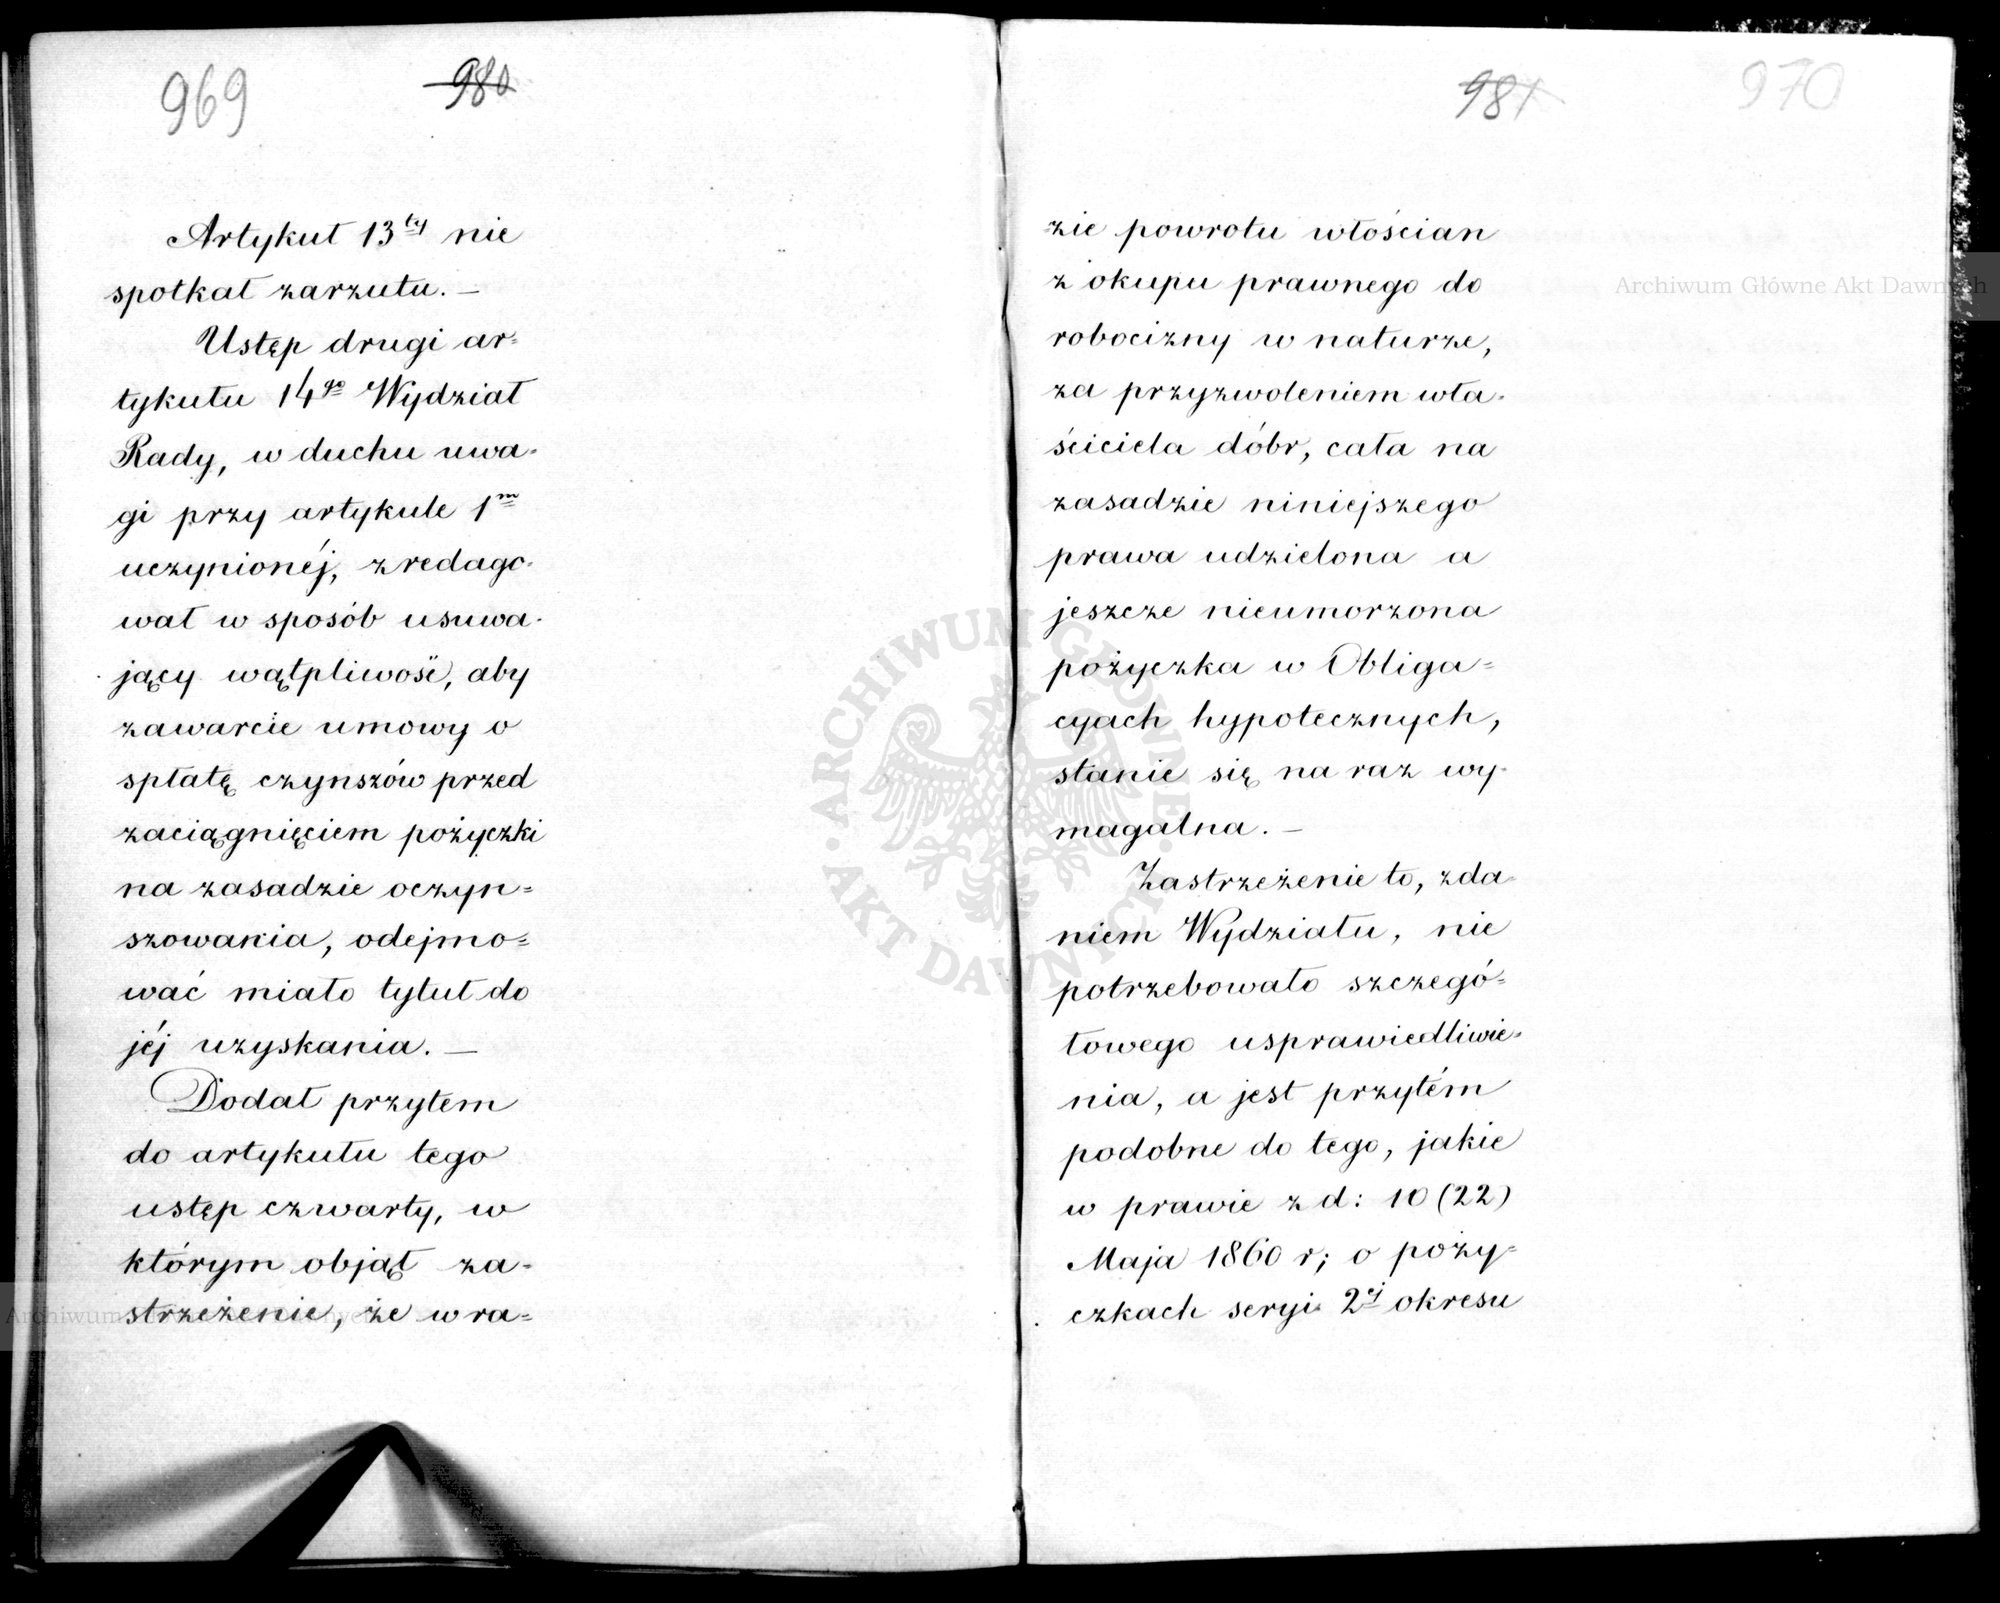 969
980
Artykuł 13ty nie
spotkał zarzutu. —
Ustęp drugi ar=
tykułu 14go Wydział
Rady, w duchu uwa-
gi przy artykule 1m
uczynionéj, zredago-
wał w sposób usuwa-
jący wątpliwość, aby
zawarcie umowy o
spłatę czynszów przed
zaciągnięciem pożyczki
na zasadzie oczyn=
szowania, odejmo=
wać miało tytuł do
jéj uzyskania. —
Dodał przytem
do artykułu tego
ustęp czwarty, w
którym objął za-
strzeżenie, że w ra=
981
970
zie powrotu włościan
z okupu prawnego do
robocizny w naturze,
za przyzwoleniem wła-
ściciela dóbr, cała na
zasadzie niniejszego
prawa udzielona a
jeszcze nieumorzona
pożyczka w Obliga=
cyach hypotecznych,
stanie się na raz wy-
magalna. —
Zastrzeżenie to, zda-
niem Wydziału, nie
potrzebowało szczegó=
łowego usprawiedliwie=
nia, a jest przytém
podobne do tego, jakie
w prawie z d: 10 (22)
Maja 1860 r; o poży=
czkach seryi 2éj okresu
Archiwum Główne Akt Dawnych
ARCHIWUM GŁÓWNE • AKT DAWNYCH •
Archiwum